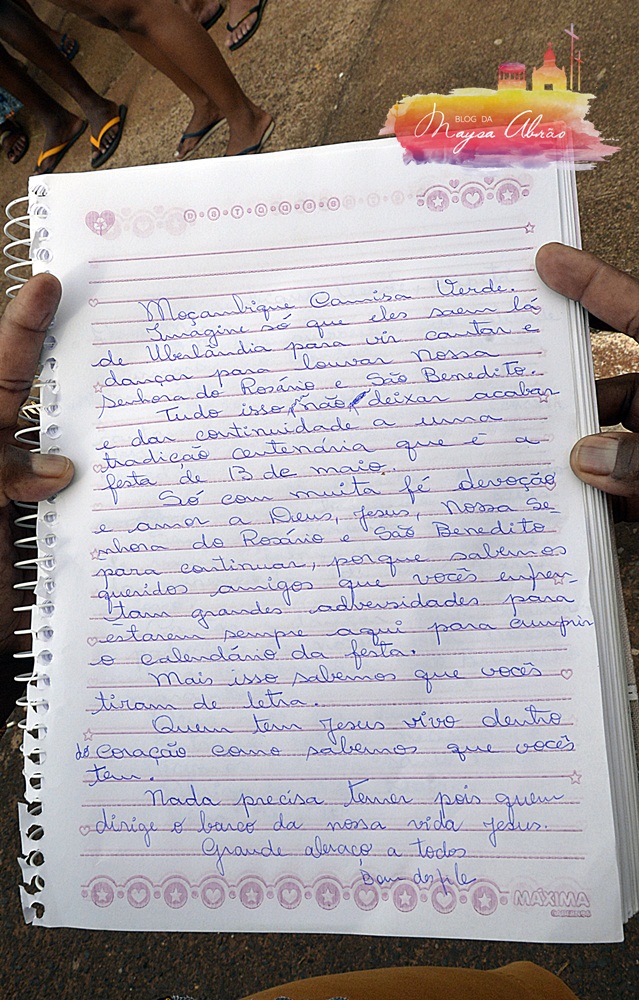 BLOG DA
Maysa Abrão
Moçambique Camisa Verde.
Imagine só que eles saem lá
de Uberlândia para vir cantar e
dançar para louvar Nossa
Senhora do Rosário e São Benedito.
Tudo isso, não deixar acabar
e dar continuidade a uma
tradição centenária que é a
festa de 13 de maio.
Só com muita fé devoção
e amor a Deus, Jesus, Nossa Se-
nhora do Rosário e São Benedito
para continuar, porque sabemos
queridos amigos que vocês enfren-
tam grandes adversidades para
estarem sempre aqui para cumprir
o calendário da festa.
Mais isso sabemos que vocês
tiram de letra.
Quem tem Jesus vivo dentro
do coração como sabemos que vocês
tem.
Nada precisa temer pois quem
dirige o barco da nossa vida Jesus.
Grande abraço a todos
Bom desfile
MÁXIMA